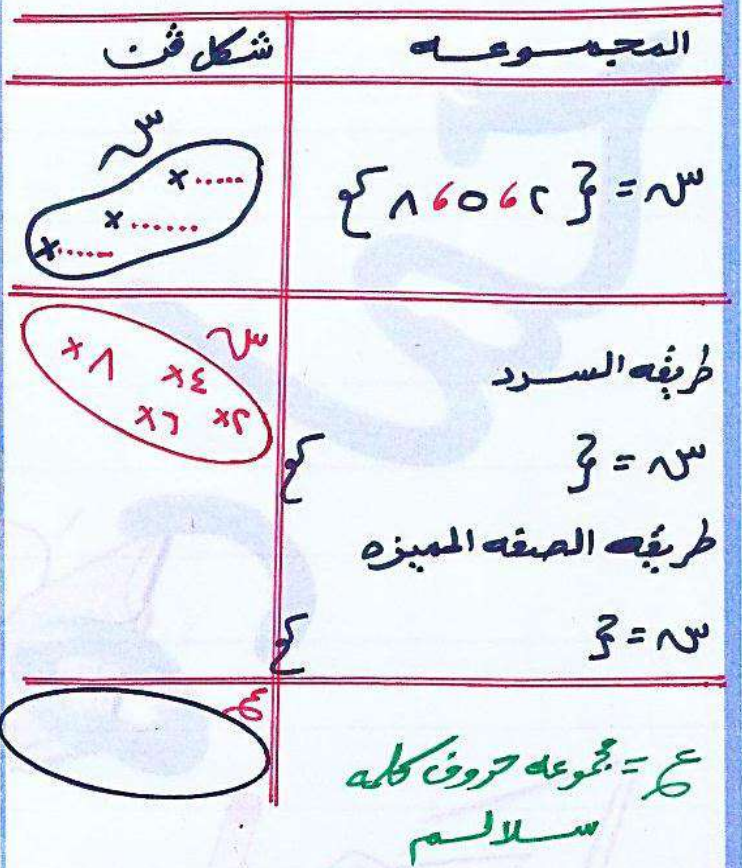 المجموعه
شكل ڤن
س = { ٢ ، ٥ ، ٨ }
س
× ......
× ......
× ......
طريقه السرد
س = { }
طريقه الصفه المميزه
س = { }
س
×٨ ×٤
×٦ ×٢
ع = مجموعه حروف كلمه
سلالسم
ع